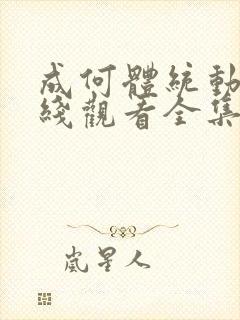 成何體統動
綫觀看全集
嵐星人